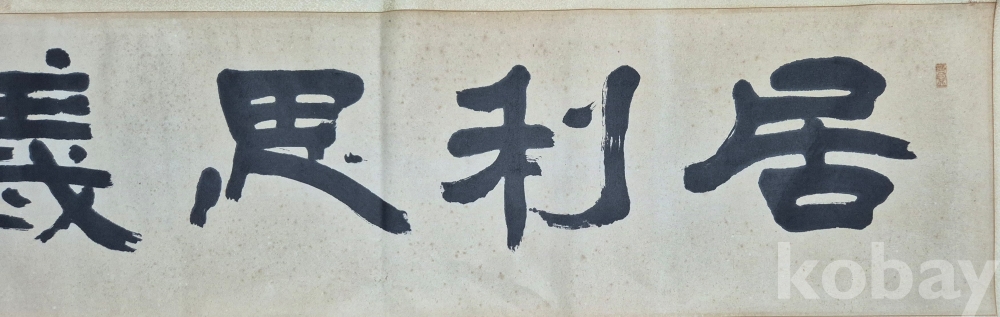 居利思義
kobay